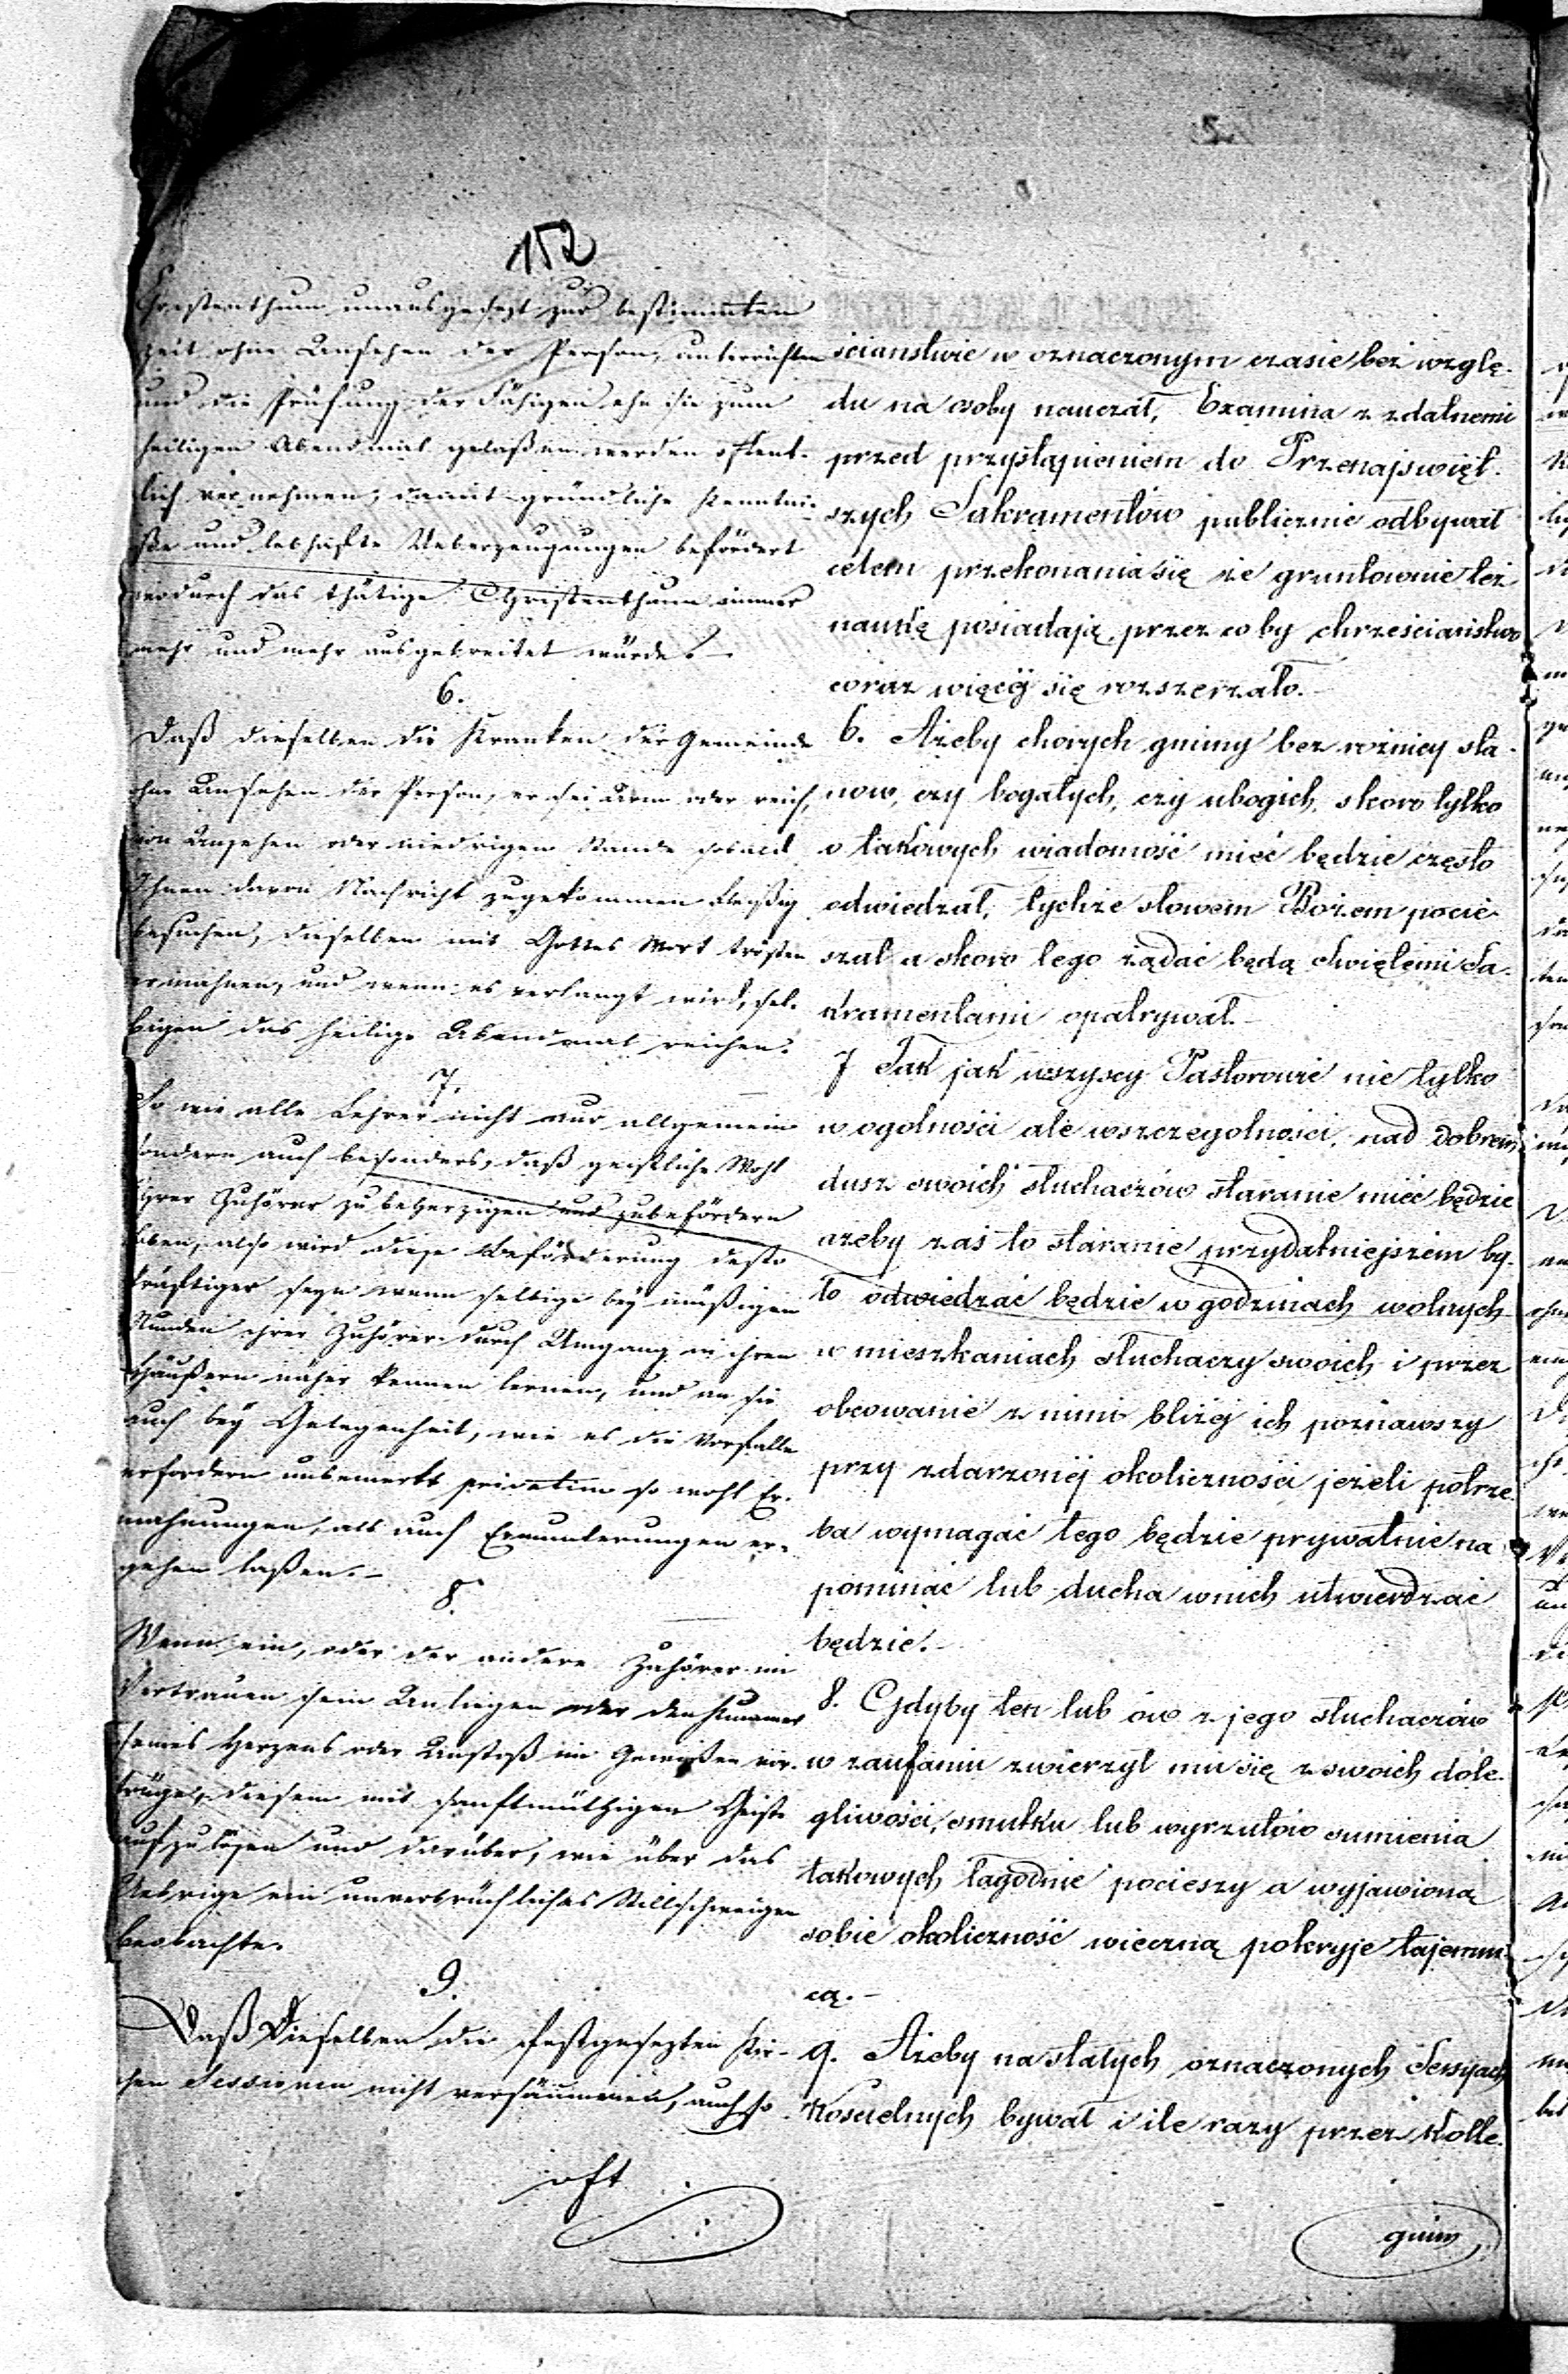 152
Christenthum unausgesezt zur bestimmten
Zeit ohne Ansehen der Person, unterrichten
und die Prüfung der Fähigen ehe sie zum
heiligen Abendmal gelaßen werden offent-
lich vernehmen, damit gründliche Kenntni-
ße und lebhafte Ueberzeugungen befördert
wodurch das thätige Christenthum immer
mehr und mehr ausgebreitet würde.-
6.
Daß dieselben die Kranken der Gemeinde
ohne Ansehen der Person, er sei arm oder reich,
von Ansehen oder niedrigem Stande sobald
Ihnen davon Nachricht zugekommen fleißig
besuchen, dieselben mit Gottes Wort trösten
ermahnen, und wenn es verlangt wird, sel-
bigen das heilige Abendmal reichen.
7.
So wie alle Lehrer nicht nur allgemein
sondern auch besonders, daß geistliche Wohl
Ihrer Zuhörer zu beherzigen und zubefördern
haben, also wird diese Beförderung desto
kräftiger seyn wenn selbige bey müßigen
Stunden ihrer Zuhörer durch Umgang in ihren
Häußern näher kennen lernen, und an sie
auch bey Gelegenheit, wie es die Vorfälle
erfordern unbemerkt privatim so wohl Er-
mahnungen, als auch Ermunterungen er-
gehen laßen.-
8.
Wenn ein, oder der andere Zuhörer im
Vertrauen sein Anliegen oder den Kummer
seines Herzens oder Anstoß im Gewißen vor-
trüge, diesem mit sanftmüthigen Geiste
aufzulösen und darüber, wie über das
Uebrige ein unverbrüchliches Stillschweigen
beobachte.
9.
Daß Dieselben die festgesezten Kir-
chen Sessionen nicht versäumen, auch so
oft
ścianstwie w oznaczonym czasie bez wzglę-
du na osoby nauczał, Examina z zdatnemi
przed przystąpieniem do Przenajswięt-
szych Sakramentów publicznie odbywał
celem przekonania się że gruntownie też
naukę posiadają, przez co by chrześciaństwo
coraz więcéj się rozszerzało.-
6. Ażeby chorych gminy bez rożnicy sta-
now, czy bogatych, czy ubogich, skoro tylko
o takowych wiadomość mieć będzie często
odwiedzał, tychże słowem Bożem pocie-
szał a skoro tego żądać będą Swiętemi Sa-
kramentami opatrywał.-
7 Tak jak wszyscy Pastorowie nie tylko
w ogolności ale wszczegolności, nad dobrem
dusz swoich słuchaczów staranie mieć będzie
ażeby zaś to staranie przydatniejszem by-
ło odwiedzać będzie w godzinach wolnych
w mieszkaniach słuchaczy swoich i przez
obcowanie z nimi bliżéj ich poznawszy
przy zdarzonéj okoliczności jeżeli potrze-
ba wymagać tego będzie prywatnie na-
pominać lub ducha wnich utwierdzać
będzie.-
8. Gdyby ten lub ów z jego słuchaczów
w zaufaniu zwierzył mu się z swoich dole-
gliwości, smutku lub wyrzutów sumienia
takowych łagodnie pocieszy a wyjawioną
sobie okoliczność wieczną pokryje tajemni-
cą.-
9. Ażeby na stałych oznaczonych Sessyach
Kościelnych bywał i ile razy przez Kolle-
gium